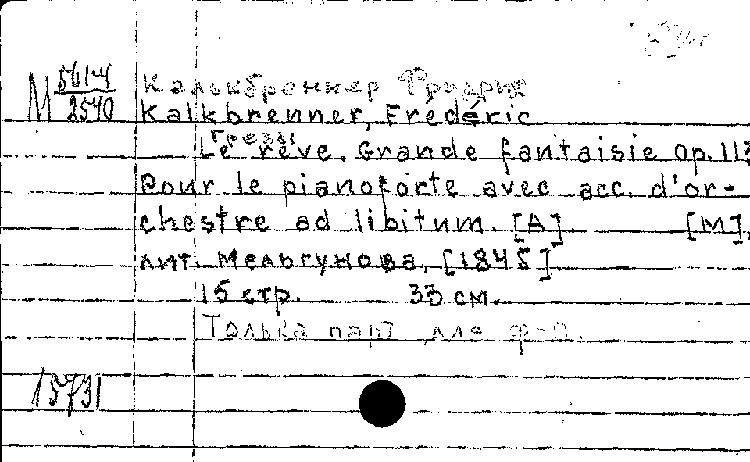 М 5614/2540
Калькбреннер Фридрих
Kalkbrenner, Frédéric
Грезы
Le rêve. Grande fantaisie op. 113
pour le pianoforte avec acc. d'or-
chestre ad libitum. [А] [М],
лит. Мельгунова, [1845]
15 стр. 33 см.
Только парт. для ф-п.
15731